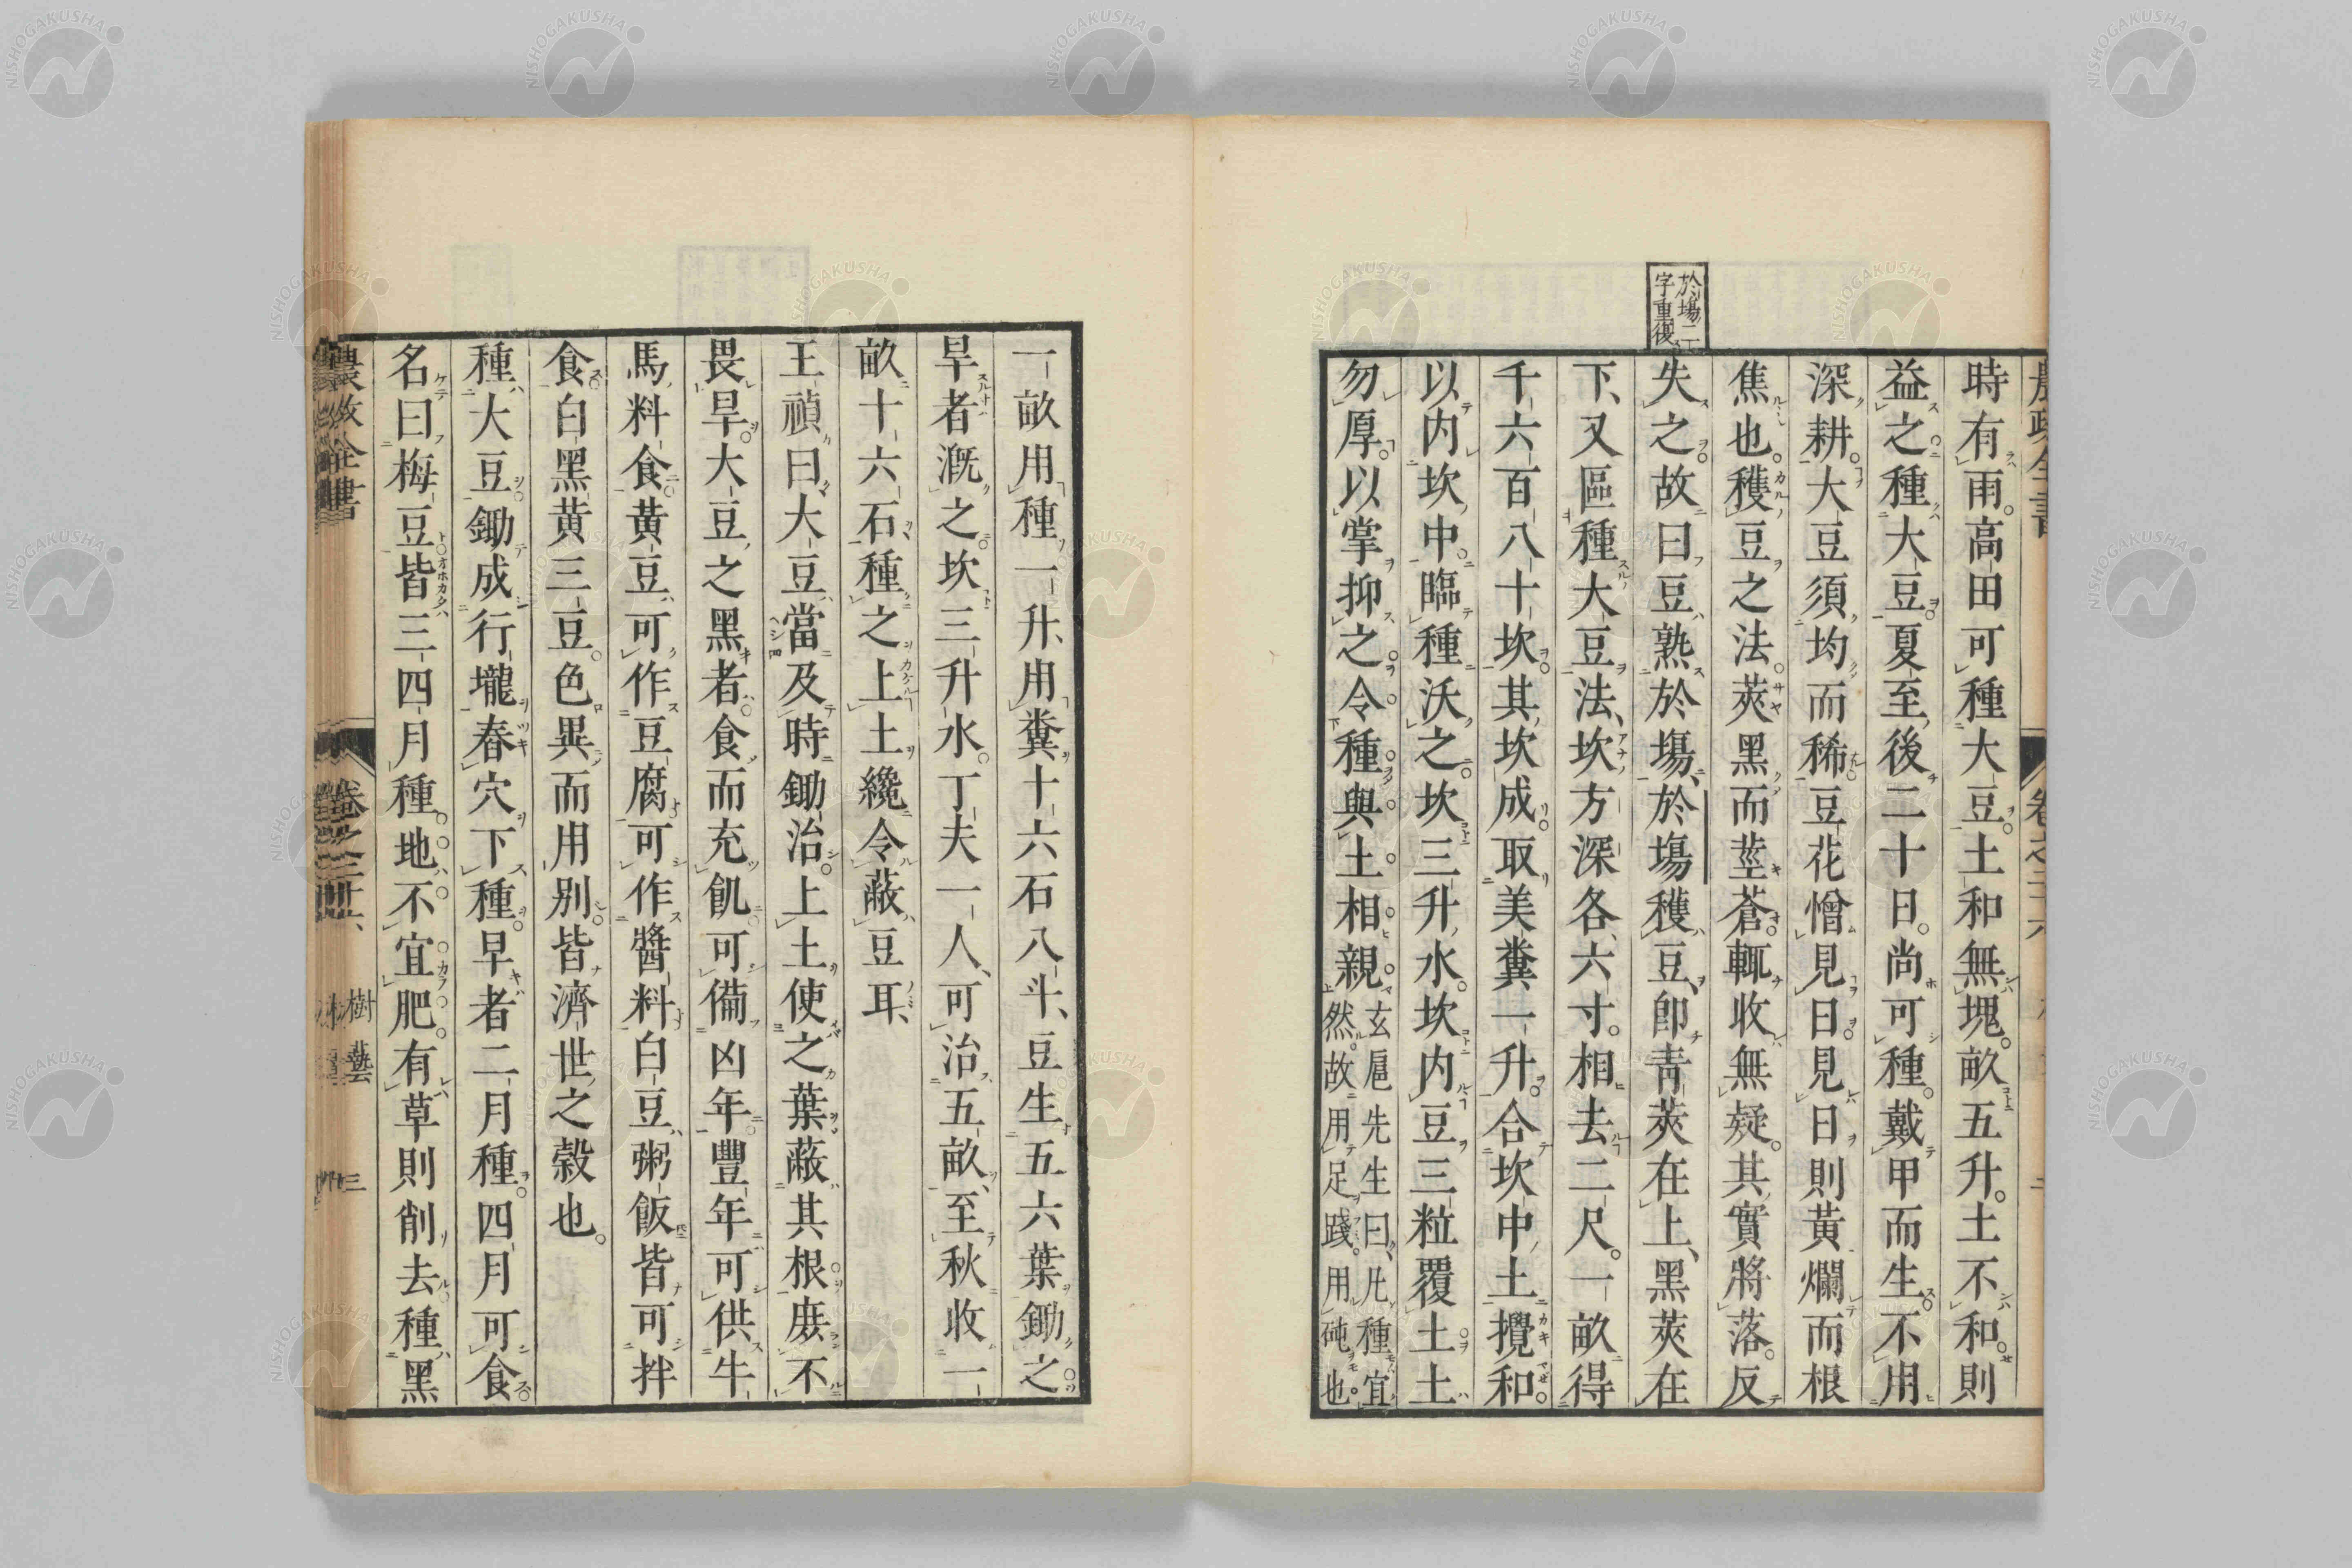 於場二
字重復
時有雨。高田可種大豆。土和無塊。畝五升。土不和則
益之。種大豆。夏至後二十日。尚可種。戴甲而生。不用
深耕。大豆須均而稀。豆花憎見日。見日則黃爛而根
焦也。穫豆之法。莢黑而莖蒼。輒收無疑。其實將落。反
失之。故曰豆熟於場、於場穫豆、卽青莢在上、黑莢在
下、又區種大豆法、坎方深各六寸。相去二尺。一畝得
千六百八十坎。其坎成。取美糞一升。合坎中土攪和。
以內坎中。臨種沃之。坎三升水。坎內豆三粒覆土。土
勿厚。以掌抑之。令種與土相親。玄扈先生曰、凡種宜
然。故用足踐。用砘也。
一畝用種一升、用糞十六石八斗、豆生五六葉鋤之。
旱者漑之。坎三升水。丁夫一人、可治五畝、至秋收一
畝十六石、種之上土纔令蔽豆耳、
王禎曰大豆當及時鋤治。上土使之葉蔽其根。庶不
畏旱。大豆之黑者。食而充飢。可備凶年。豐年可供牛
馬料食。黃豆可作豆腐。可作醬料。白豆粥飯皆可拌
食。白黑黃三豆。色異而用別。皆濟世之穀也。
種大豆。鋤成行壠。舂穴下種。早者二月種。四月可食。
名曰梅豆。皆三四月種。地不宜肥。有草則削去。種黑
農政全書
卷之二十六
樹藝
三